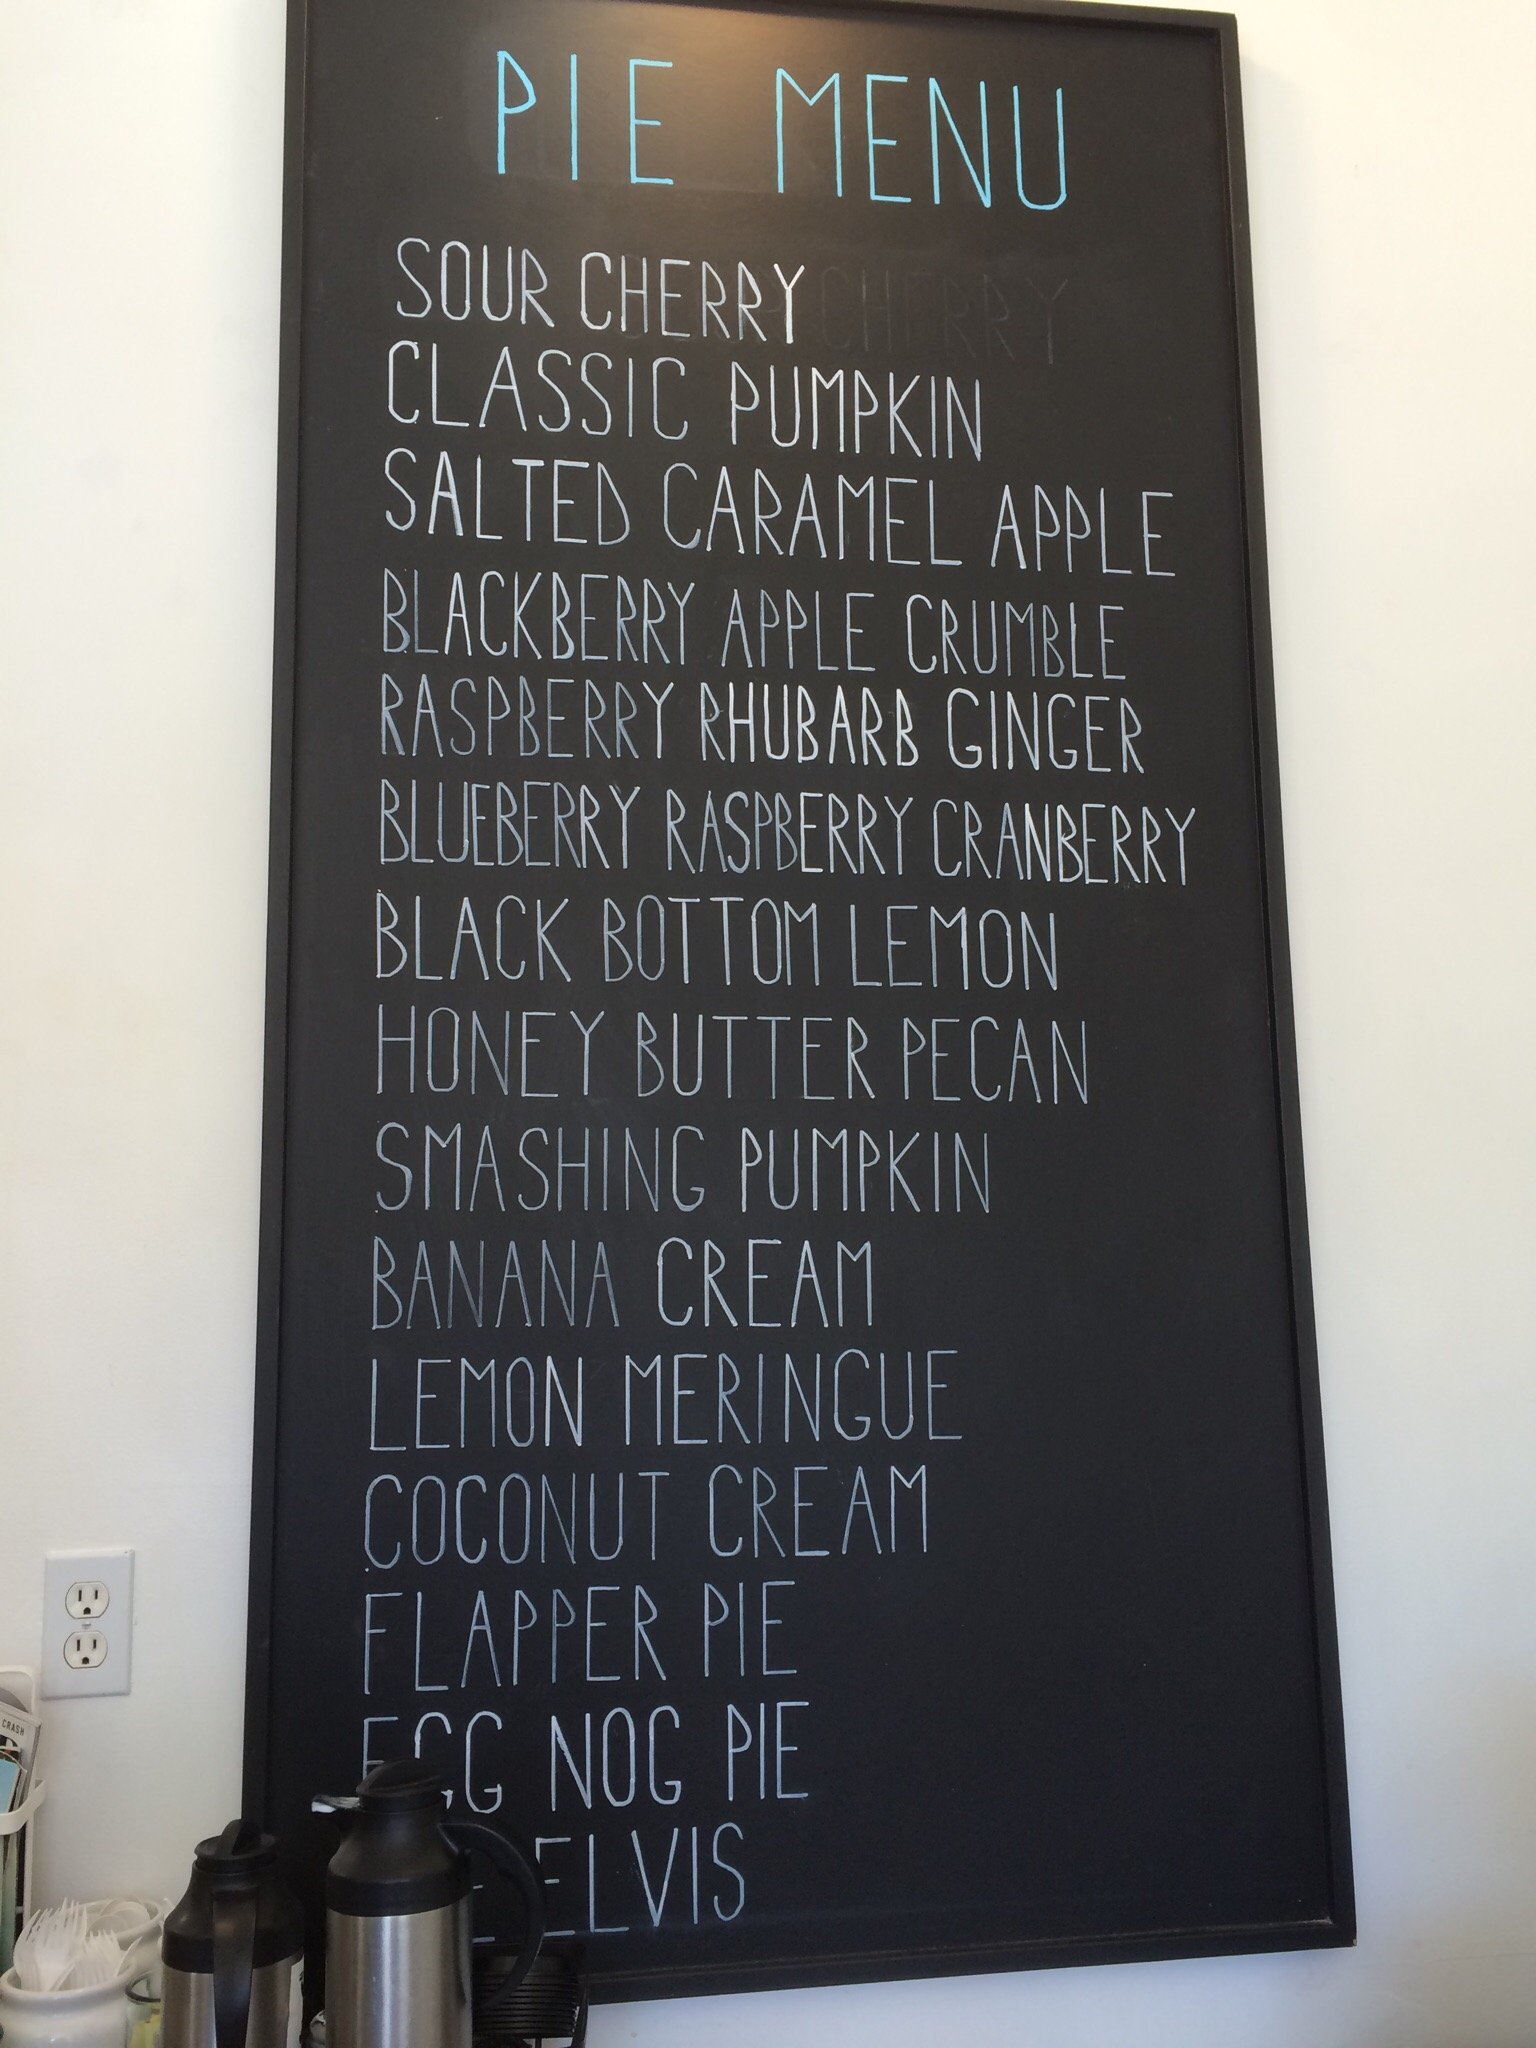 PIE MENU
SOUR CHERRY
CLASSIC PUMPKIN
SALTED CARAMEL APPLE
BLACKBERRY APPLE CRUMBLE
RASPBERRY RHUBARB GINGER
BLUEBERRY RASPBERRY CRANBERRY
BLACK BOTTOM LEMON
HONEY BUTTER PECAN
SMASHING PUMPKIN
BANANA CREAM
LEMON MERINGUE
COCONUT CREAM
FLAPPER PIE
EGG NOG PIE
ELVIS
CRASH